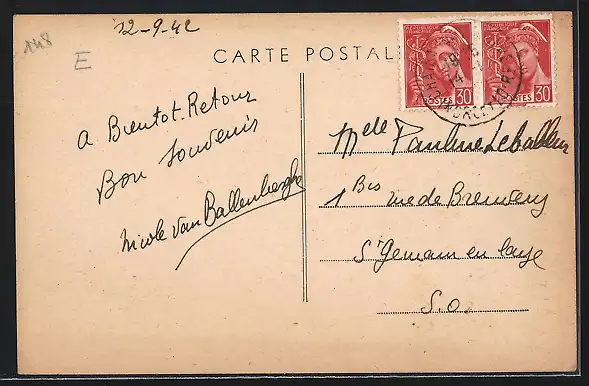 148
12-9-42
E
CARTE POSTALE
RÉPUBLIQUE FRANÇAISE
POSTES 30
RÉPUBLIQUE FRANÇAISE
POSTES 30
A Bientot. Retour
Bon Souvenir
Nicole Van Ballenberghe
Melle Pauline
1 Bis rue de
St Germain en Laye
S.O.